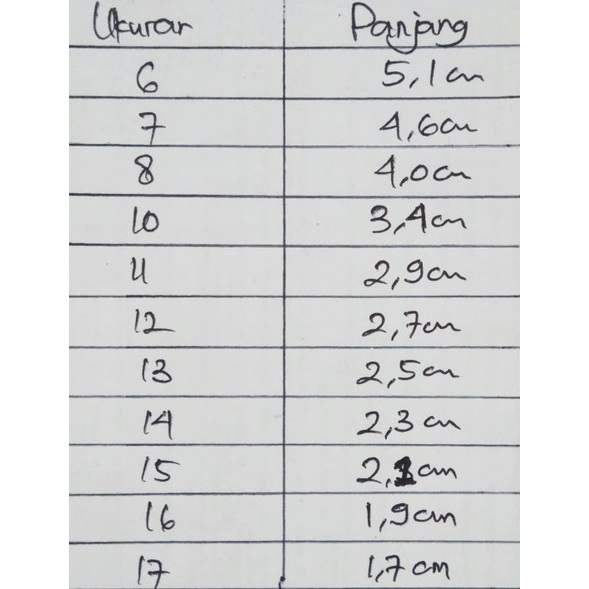 Ukuran Panjang
6 5,1 cm
7 4,6 cm
8 4,0 cm
10 3,4 cm
11 2,9 cm
12 2,7 cm
13 2,5 cm
14 2,3 cm
15 2,1 cm
16 1,9 cm
17 1,7 cm